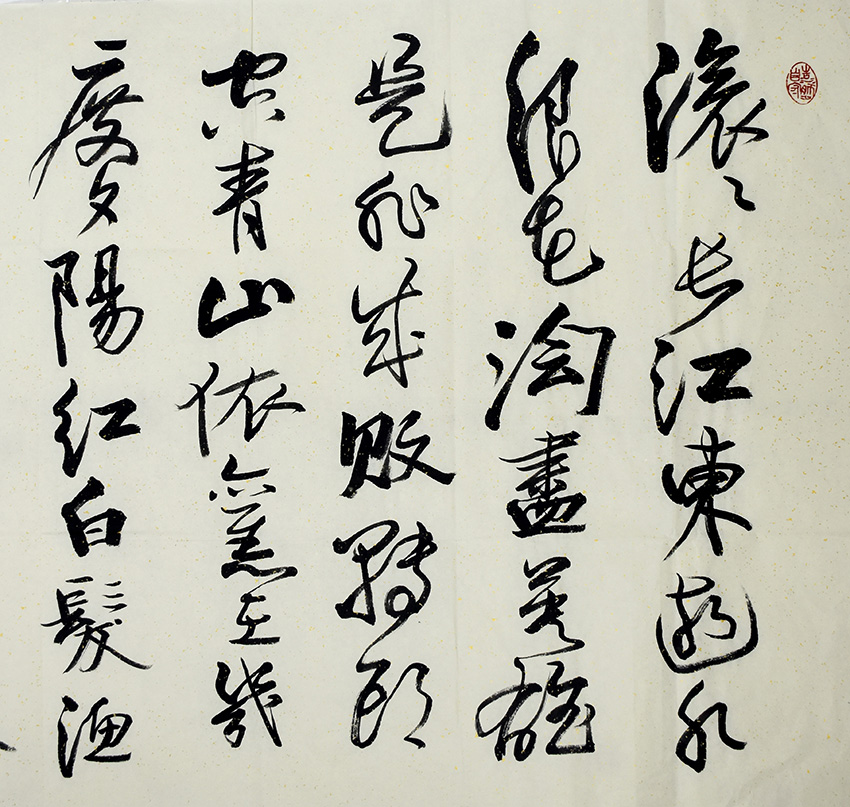 滾〻長江東逝水
浪花淘盡英雄
是非成敗轉頭
空青山依舊在幾
度夕陽紅白髮漁